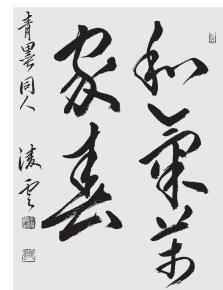 和氣萬
家春
青墨同人 凌雲